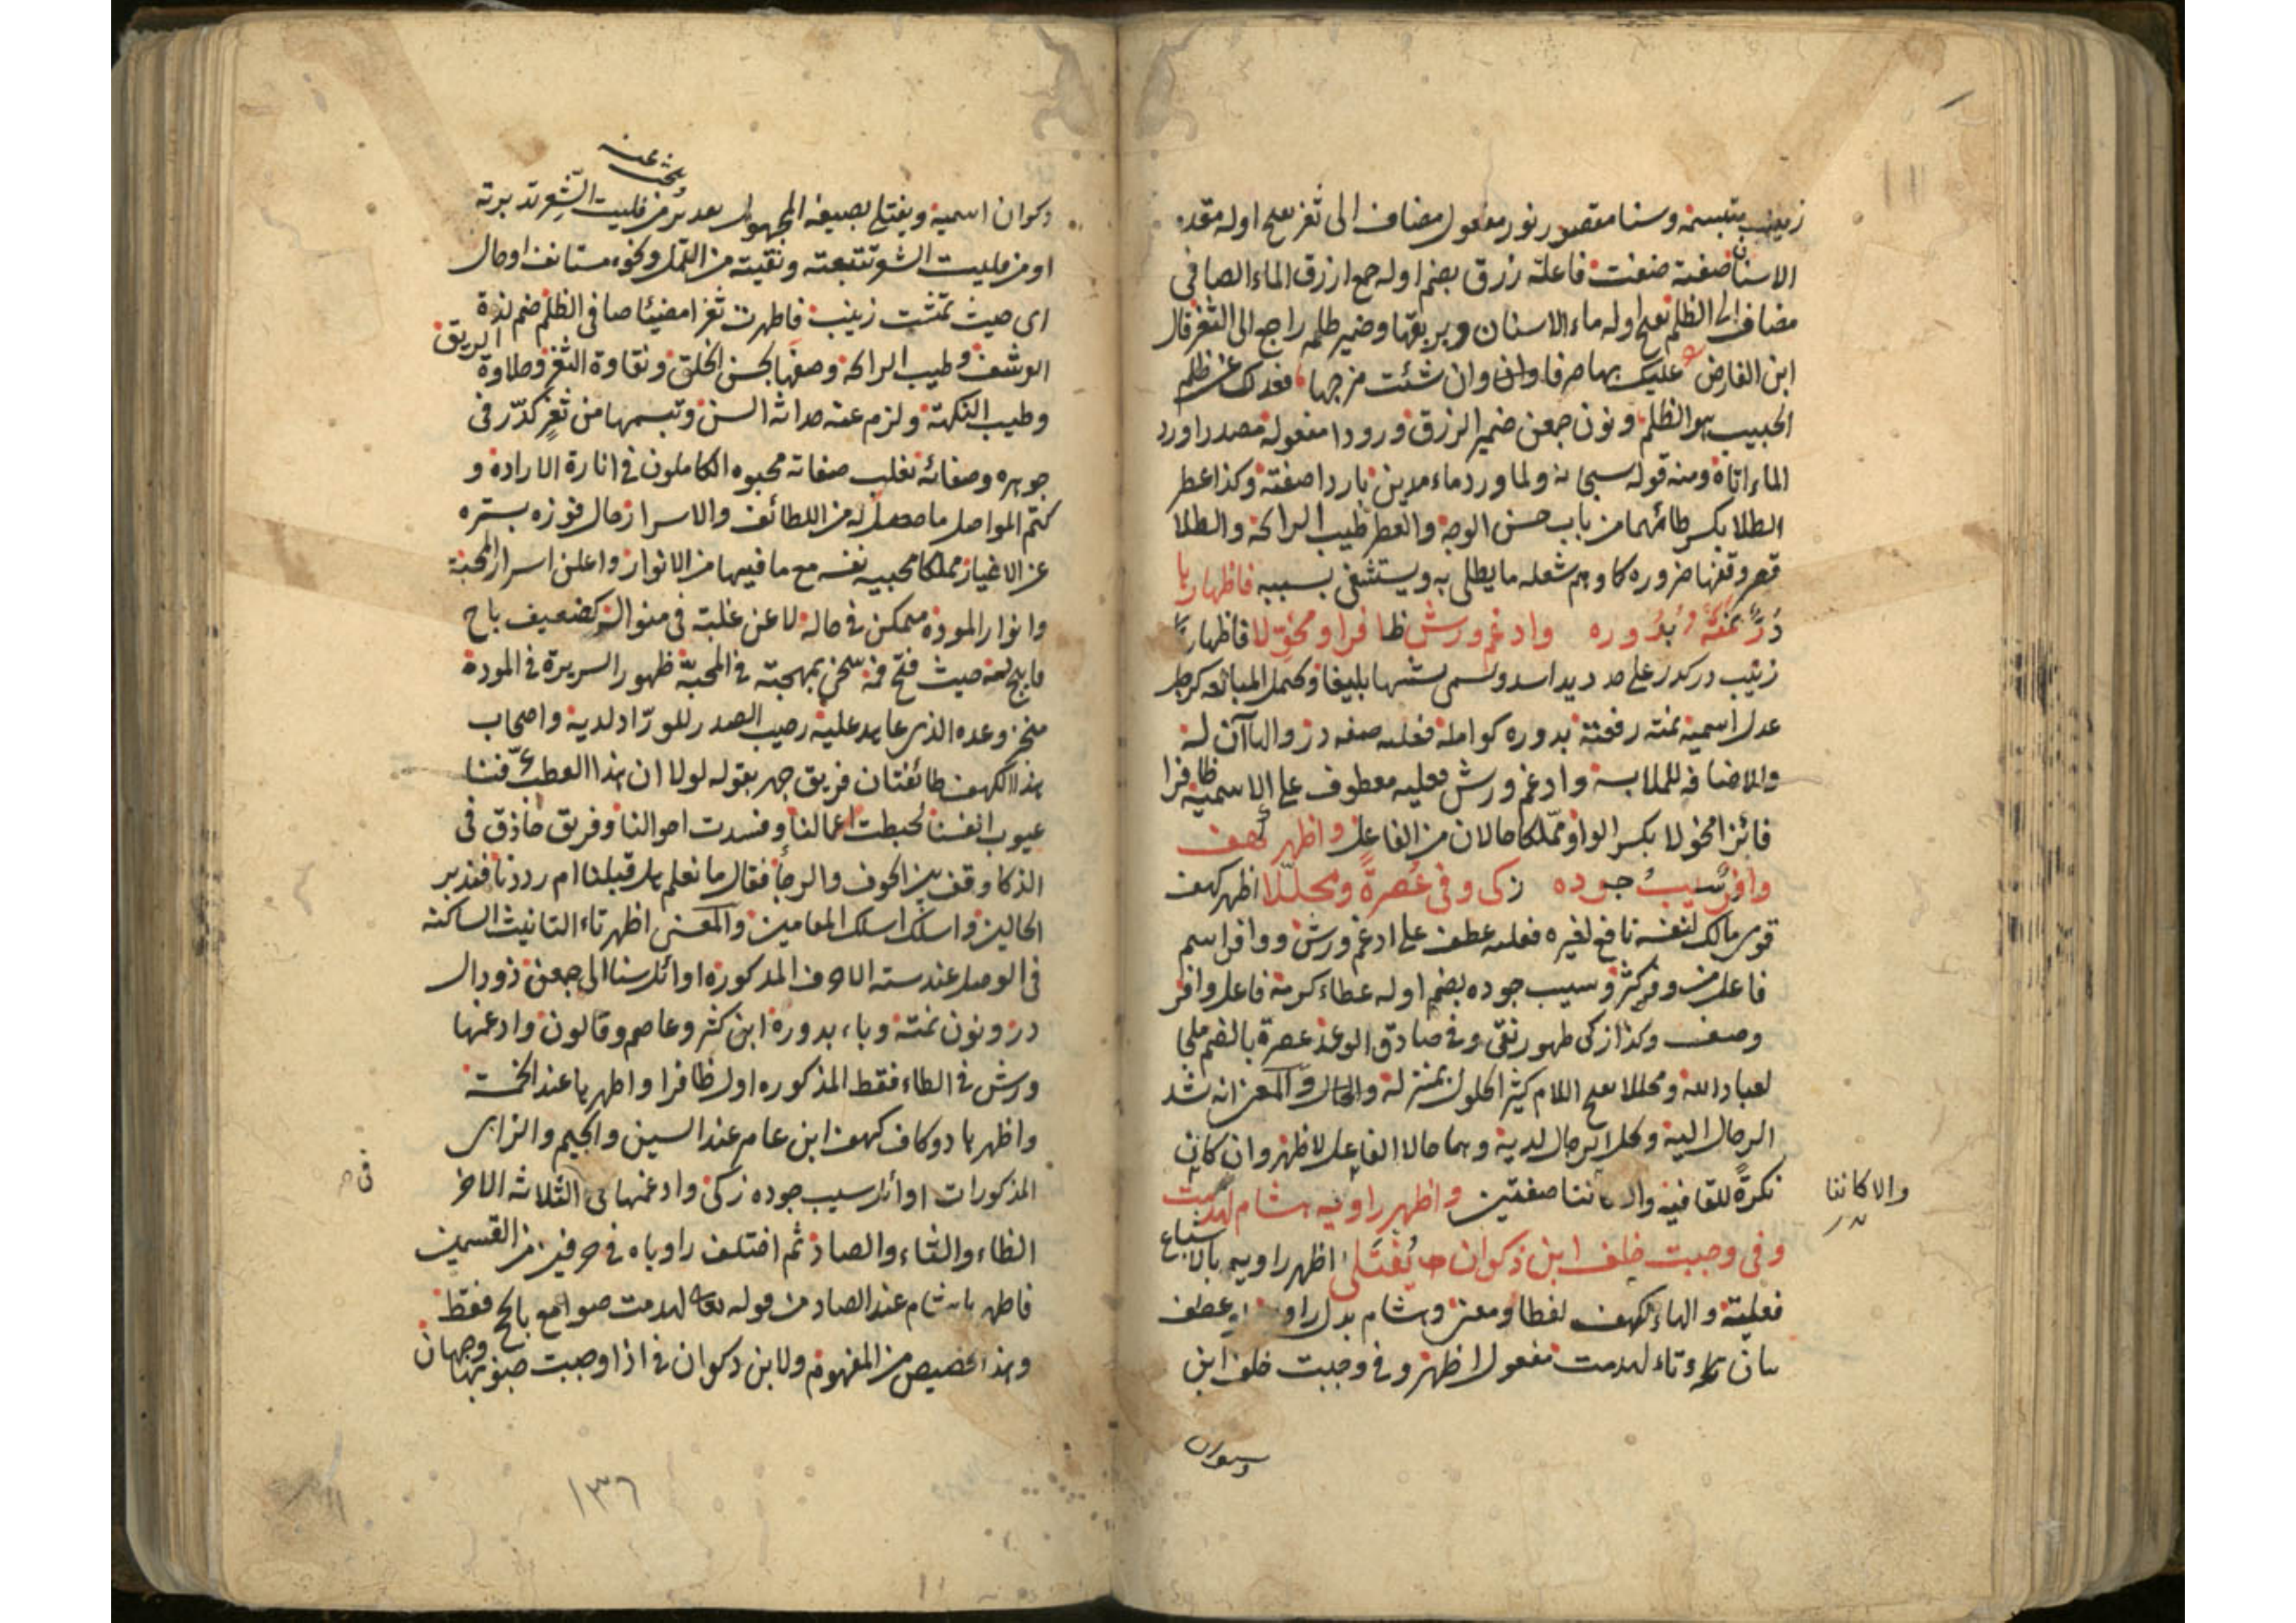 زينب مبتسمة وسنا مقصور نور مفعول مضاف الى ثغر بفتح اوله مقدم
الاسنان صفته صفت فاعلته زرق بضم اوله جمع ازرق الماء الصافى
مضاف الى الظلم بفتح اوله ماء الاسنان وبريقها وضمير ظلمه راجع الى الثغر قال
ابن الفارض عليك بها صرفا وان شئت مزجها فعدلك عن ظلم
الحبيب هو الظلم ونون جمعن ضمير الزرق ورودا مفعوله مصدر اورد
الماء اتاه ومنه قوله سبحانه ولما ورد ماء مدين باردا صفته وكذا عطر
الطلا بكسر طائهما من باب حسن الوجه والعطر طيب الراحة والطلا
قصر وقفها ضروره كاوجم شعله ما يطلى به ويستشفى بسببه فاظهارها
در نمته بدوره وادغم ورش ظافرا ومخولا فاظهارها
زينب در كدر على حد ديد اسد ويسمى تشبيها بليغا ويحتمل المبالغه كرجل
عدل اسمية نمته رفعته بدوره كوامله فعليه صفه در والهاآن له
والاضافه للملابسة وادغم ورش فعليه معطوف على الاسمية ظافرا
فائزا مخولا بكسر الواو مملكا حالان من الفاعل واظهر كهف
وافر سيب جوده زكى وفى عصرة ومحللا اظهر كهف
قوى مالك لنفسه نافع لغيره فعليه عطف على ادغم ورش ووافر اسم
فاعل من وفر كثر وسيب جوده بضم اوله عطاء كرمه فاعل وافر
وصف وكذا زكى طهور نقى وفى صادق الوعد عصرة بالضم ملجا
لعباد الله ومحللا بفتح اللام كثير الحلول بمنزله والحال والمعنى انه شد
الرحال اليه وكل الرحال لديه وهما حالا الفاعل لاظهر وان كان
نكرة للقافيه والا كانتا صفتين واظهر راويه هشام لهدمت
والا كانتا
وفى وجبت خلف ابن ذكوان يفتلى اظهر راويه بالاشباع
فعلية والهاء لكهف لفظا ومعنى وهشام بدل راويه او عطف
بيان له وتاء لهدمت مفعول اظهر وفى وجبت خلف ابن
ذكوان اسمية ويفتلى بصيغة المجهول بعد بر من فليت الشعر تدبرته
وبحثت عنه
او من فليت الشعر تتبعته ونقيته من القمل ونحوه مستانف او حال
اى حيث تمشت زينب فاظهرت ثغرا مضيئا صافى الظلم ضم لذة
الرشف وطيب الراحة وصفها بحسن الخلق ونقاوة الثغر وحلاوة الريق
وطيب النكهة ولزم عنه حداثة السن وتبسمها من ثغر كدر فى
جوهره وصفائه تغلب صفاته محبوه الكاملون فى انارة الارادة و
كتم المواصل ما حصل له من اللطائف والاسرار حال فوزه بستره
عن الاغيار مملكا محبيه نفسه مع ما فيها من الانوار واعلن اسرار المحبة
وانوار المودة متمكن فى حاله لا عن غلبة فى منواله كضعيف باح
فابيح لعنه حيث فتح فمه سخى بمهجته فى المحبة ظهور السريرة فى المودة
منجز وعده الذى عاهد عليه رحيب الصدر للوراد لديه واصحاب
هذا الكهف طائفتان فريق جهر بقوله لولا ان هذا العطب فتنا
عيوب انفسنا لحبطت اعمالنا وفسدت احوالنا وفريق حاذق فى
الذكا وقف بين الخوف والرجا فقال ما نعلم هل قبلنا ام رددنا فتدبر
الحالين واسلك اسلك المقامين والمعنى اظهر تاء التانيث الساكنه
فى الوصل عند سته الاحرف المذكورة اوائل سنا الى جمعن ذو دال
در ونون نمته وباء بدوره ابن كثير وعاصم وقالون وادغمها
ورش فى الظاء فقط المذكوره اول ظافرا واظهرها عند الخمسة
واظهرها دو كاف كهف ابن عامر عند السين والجيم والزاى
المذكورات اوائل سيب جوده زكى وادغمها فى الثلاثه الاخر
فى
الظاء والثاء والصاد ثم اختلف راوياه فى حرفين من القسمين
فاظهر هشام عند الصاد من قوله تعالى لهدمت صوامع بالحج فقط
وهذا تخصيص من المفهوم ولابن ذكوان فى اذا وجبت جنوبها وجهان
١٣٦